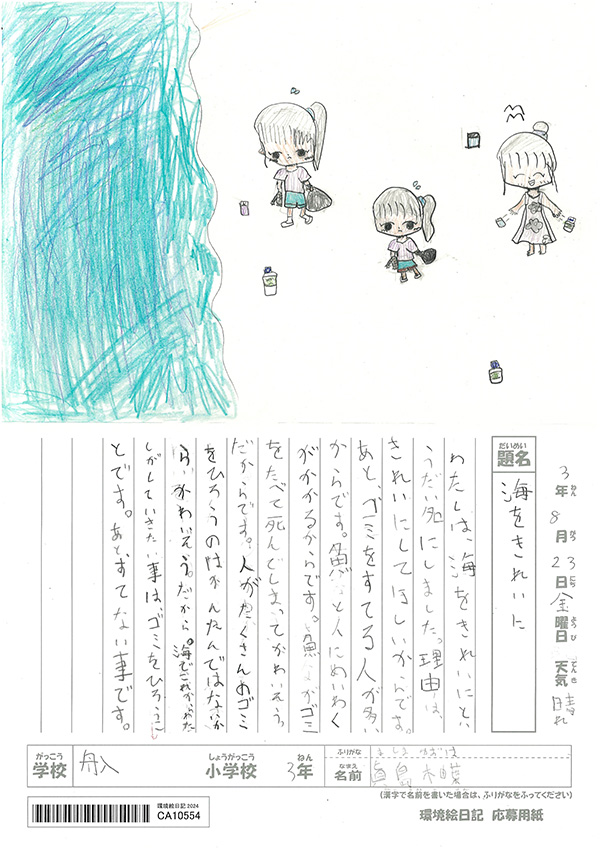 3年8月23日金曜日 天気晴れ
ねん がつ にち ようび てんき
だいめい
題名 海をきれいに
わたしは、海をきれいにとい
うだい名にしました。理由は、
きれいにしてほしいからです。
あと、ゴミをすてる人が多い
からです。魚などと人にめいわく
がかかるからです。魚などがゴミ
をたべて死んでしまってかわいそう
だからです。人がたくさんのゴミ
をひろうのはかんたんではないか
らかわいそう。だから。海でこれからわた
しがしていきたい事は、ゴミをひろうこ
とです。あと、すてない事です。
がっこう しょうがっこう ねん
学校 舟入 小学校 3年
ふりがな ましま
なまえ
名前
(漢字で名前を書いた場合は、ふりがなをふってください)
環境絵日記2024
CA10554
環境絵日記 応募用紙